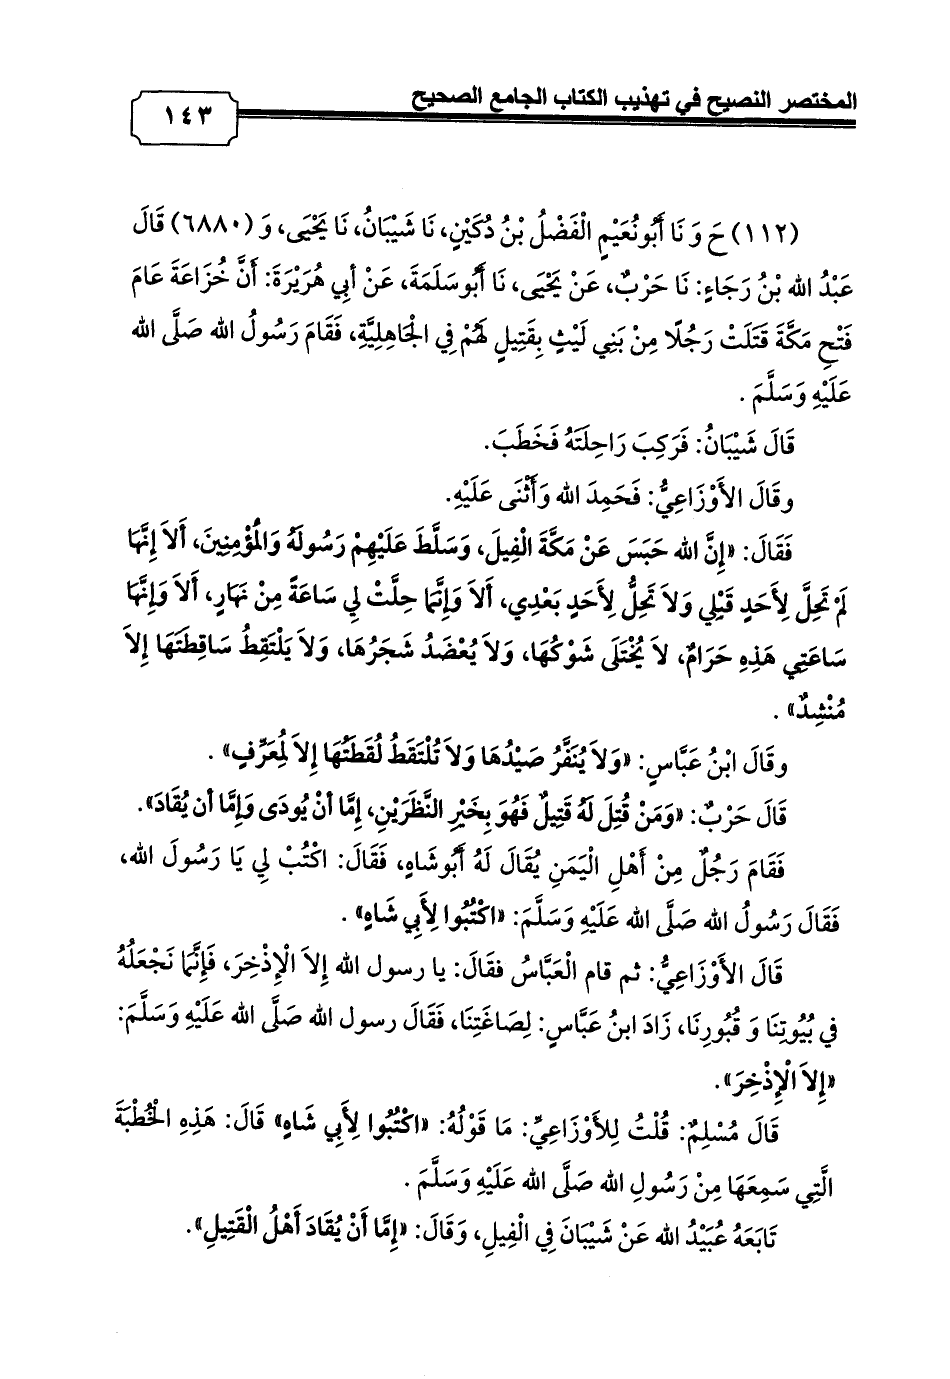 المختصر النصيح في تهذيب الكتاب الجامع الصحيح
١٤٣
(١١٢) حَ وَ نَا أَبُونُعَيْمٍ الْفَضْلُ بْنُ دُكَيْنٍ، نَا شَيْبَانُ، نَا يَحْيَى، وَ (٦٨٨٠) قَالَ
عَبْدُ الله بْنُ رَجَاءٍ: نَا حَرْبٌ، عَنْ يَحْيَى، نَا أَبُوسَلَمَةَ، عَنْ أبِي هُرَيْرَةَ: أَنَّ خُزَاعَةَ عَامَ
فَتْحِ مَكَّةَ قَتَلَتْ رَجُلًا مِنْ بَنِي لَيْثٍ بِقَتِيلٍ لَهُمْ فِي الْجَاهِلِيَّةِ، فَقَامَ رَسُولُ الله صَلَّى الله
عَلَيْهِ وَسَلَّمَ .
قَالَ شَيْبَانُ: فَرَكِبَ رَاحِلَتَهُ فَخَطَبَ.
وقَالَ الأَوْزَاعِيُّ: فَحَمِدَ الله وَأَثْنَى عَلَيْهِ.
فَقَالَ: «إِنَّ الله حَبَسَ عَنْ مَكَّةَ الْفِيلَ، وَسَلَّطَ عَلَيْهِمْ رَسُولَهُ وَالْمُؤْمِنِينَ، أَلاَ إِنَّهَا
لَمْ تَحِلَّ لِأَحَدٍ قَبْلِي وَلاَ تَحِلُّ لِأَحَدٍ بَعْدِي، أَلاَ وَإِنَّمَا حِلَّتْ لِي سَاعَةً مِنْ نَهَارٍ، أَلاَ وَإِنَّهَا
سَاعَتِي هَذِهِ حَرَامٌ، لاَ يُخْتَلَى شَوْكُهَا، وَلاَ يُعْضَدُ شَجَرُهَا، وَلاَ يَلْتَقِطُ سَاقِطَتَهَا إِلاَ
مُنْشِدٌ» .
وقَالَ ابْنُ عَبَّاسٍ: «وَلاَ يُنَفَّرُ صَيْدُهَا وَلاَ تُلْتَقَطُ لُقَطَتُهَا إِلاَ لِمُعَرِّفٍ» .
قَالَ حَرْبٌ: «وَمَنْ قُتِلَ لَهُ قَتِيلٌ فَهُوَ بِخَيْرِ النَّظَرَيْنِ، إِمَّا أَنْ يُودَى وَإِمَّا أن يُقَادَ».
فَقَامَ رَجُلٌ مِنْ أَهْلِ الْيَمَنِ يُقَالَ لَهُ أَبُوشَاهٍ، فَقَالَ: اكْتُبْ لِي يَا رَسُولَ الله،
فَقَالَ رَسُولُ الله صَلَّى الله عَلَيْهِ وَسَلَّمَ: «اكْتُبُوا لِأَبِي شَاهٍ» .
قَالَ الأَوْزَاعِيُّ: ثم قام الْعَبَّاسُ فقَالَ: يا رسول الله إِلاَ الْإِذْخِرَ، فَإِنَّمَا نَجْعَلُهُ
فِي بُيُوتِنَا وَ قُبُورِنَا، زَادَ ابنُ عَبَّاسٍ: لِصَاغَتِنَا، فَقَالَ رسول الله صَلَّى الله عَلَيْهِ وَسَلَّمَ:
«إِلاَ الْإِذْخِرَ».
قَالَ مُسْلِمٌ: قُلْتُ لِلأَوْزَاعِيِّ: مَا قَوْلُهُ: «اكْتُبُوا لِأَبِي شَاهٍ» قَالَ: هَذِهِ الْخُطْبَةَ
الَّتِي سَمِعَهَا مِنْ رَسُولِ الله صَلَّى الله عَلَيْهِ وَسَلَّمَ .
تَابَعَهُ عُبَيْدُ الله عَنْ شَيْبَانَ فِي الْفِيلِ، وَقَالَ: «إِمَّا أَنْ يُقَادَ أَهْلُ الْقَتِيلِ».